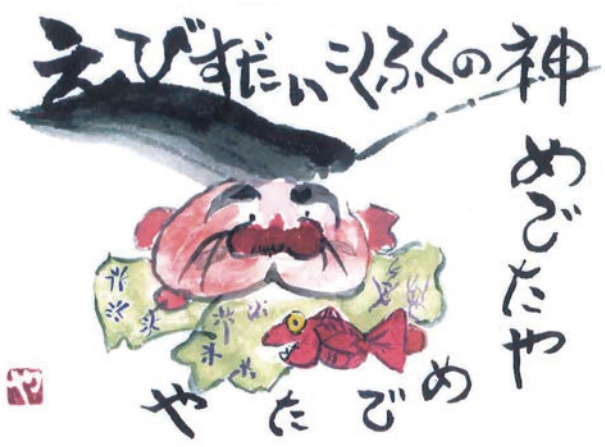 えびすだいこくふくの神
めでたや
めでたや
や